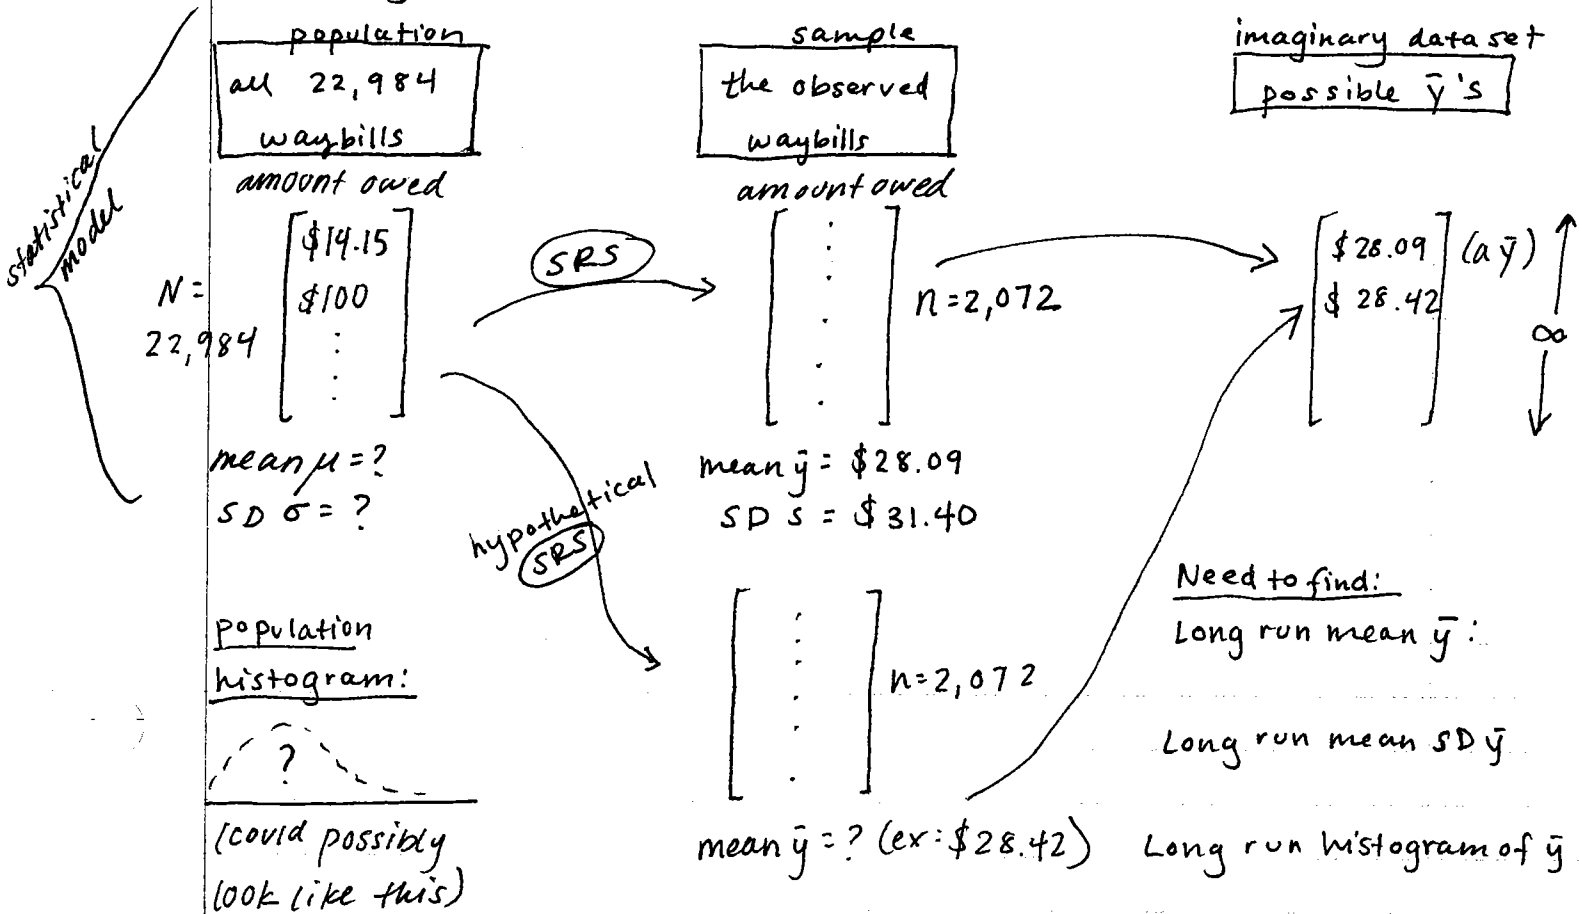 statistical
model
population
all 22,984
waybills
amount owed
N =
22,984
$14.15
$100
mean μ = ?
SD σ = ?
population
histogram:
?
(could possibly
look like this)
SRS
hypothetical
SRS
sample
the observed
waybills
amount owed
n = 2,072
mean ȳ = $28.09
SD s = $31.40
n = 2,072
mean ȳ = ? (ex: $28.42)
imaginary data set
possible ȳ's
$28.09 (a ȳ)
$28.42
∞
Need to find:
Long run mean ȳ:
Long run mean SD ȳ
Long run histogram of ȳ